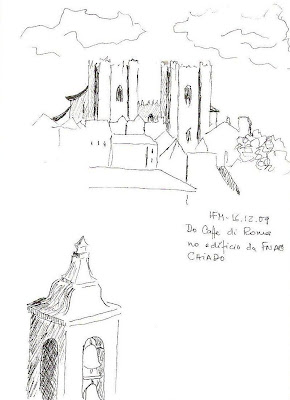 HFM-16.12.09
Do Caffe di Roma
no edifício da FNAC
CHIADO